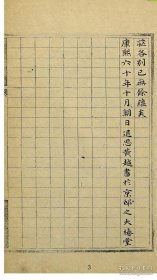 詮各別已無餘蘊矣
康熙六十年十月朔日通恩黄越書於京邸之大椿堂
3